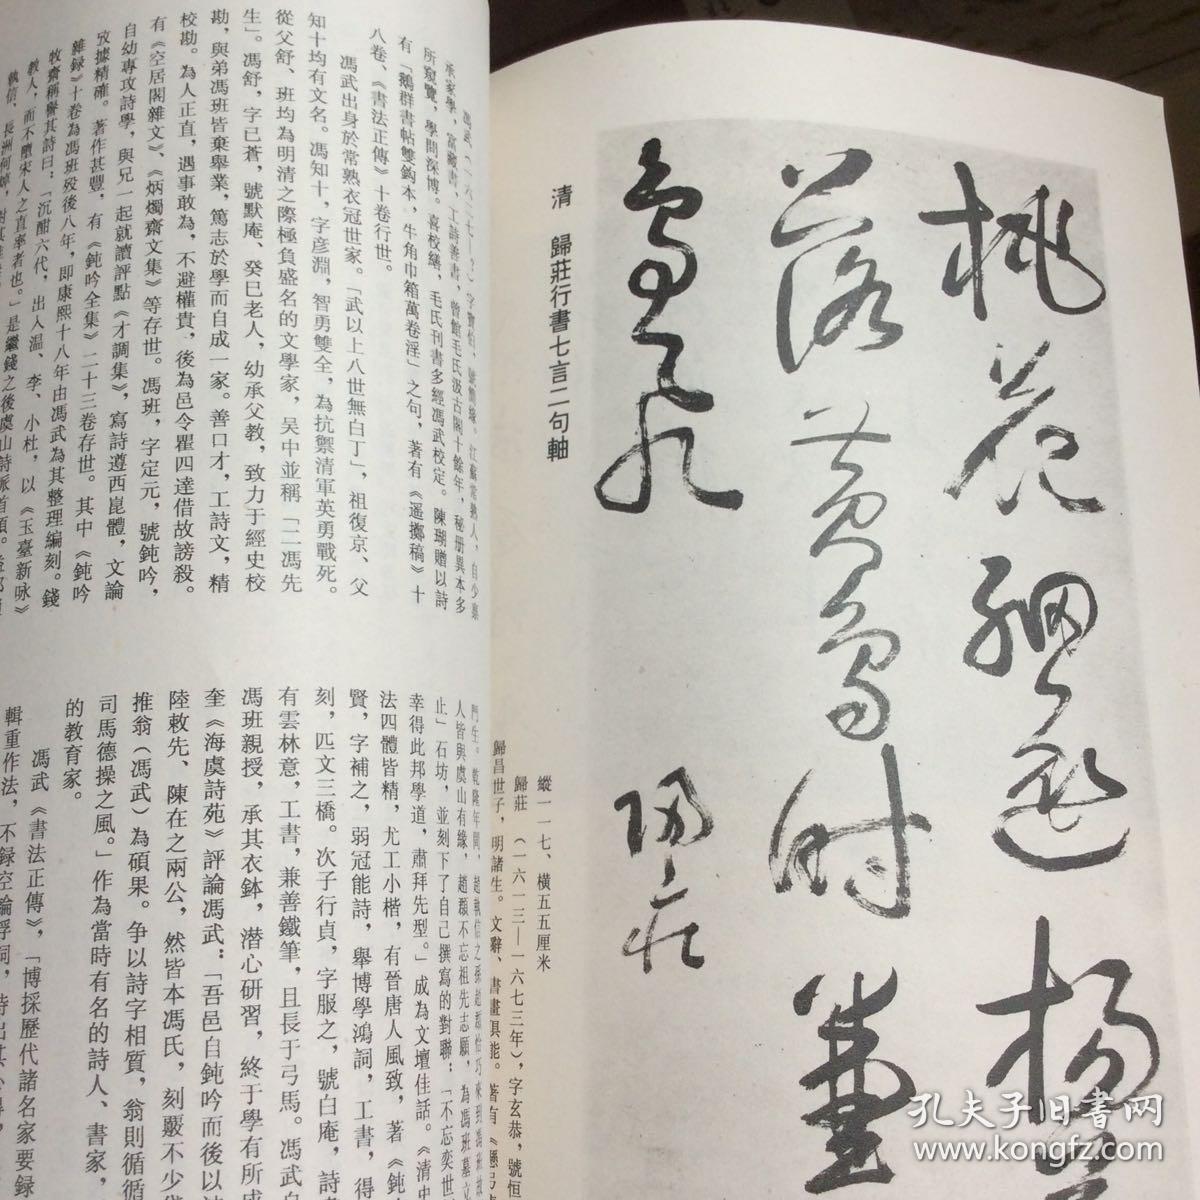 桃花細逐楊
落黃鳥時兼
鳥飛
歸莊
清 歸莊行書七言二句軸
縱一一七、橫五五厘米
歸莊 (一六一三—一六七三年),字玄恭,號恒
歸昌世子,明諸生。文辭、書畫俱能。著有《懸弓
馮武(一六二七—?)字竇伯,號簡緣。江蘇常熟人,自少
承家學,富藏書、工詩善書,曾館毛氏汲古閣十餘年,秘册異本多
所窺覽,學問深博。喜校繕,毛氏刊書多經馮武校定。陳瑚贈以詩
有「鵝群書帖雙鈎本,牛角巾箱萬卷淫」之句,著有《遥擲稿》十
八卷、《書法正傳》十卷行世。
馮武出身於常熟衣冠世家。「武以上八世無白丁」,祖復京、父
知十均有文名。馮知十,字彦淵,智勇雙全,為抗禦清軍英勇戰死。
從父舒、班均為明清之際極負盛名的文學家,吴中並稱「二馮先
生」。馮舒,字已蒼,號默庵、癸巳老人,幼承父教,致力于經史校
勘,與弟馮班皆棄舉業,篤志於學而自成一家。善口才,工詩文,精
校勘。為人正直,遇事敢為,不避權貴,後為邑令瞿四達借故謗殺。
有《空居閣雜文》、《炳燭齋文集》等存世。馮班,字定元,號鈍吟,
自幼專攻詩學,與兄一起就讀評點《才調集》,寫詩遵西崑體,文論
攷據精確。著作甚豐,有《鈍吟全集》二十三卷存世。其中《鈍吟
雜録》十卷為馮班殁後八年,即康熙十八年由馮武為其整理編刻。錢
牧齋稱譽其詩曰:「沉酣六代,出入温、李、小杜,以《玉臺新咏》
教人,而不墮宋人之直率者也。」是繼錢之後虞山詩派首領。
執信、長洲何焯,
門生。乾隆年間,趙執信之孫趙
人皆與虞山有緣,趙顥不忘祖先志願,為馮班墓立
止」石坊,並刻下了自己撰寫的對聯:「不忘奕世
幸得此邦學道,肅拜先型。」成為文壇佳話。《清史
法四體皆精,尤工小楷,有晉唐人風致,著《鈍
賢,字補之,弱冠能詩,舉博學鴻詞,工書,得
刻,匹文三橋。次子行貞,字服之,號白庵,詩
有雲林意,工書,兼善鐵筆,且長于弓馬。馮武自
馮班親授,承其衣鉢,潜心研習,終于學有所成
奎《海虞詩苑》評論馮武:「吾邑自鈍吟而後以
陸敕先、陳在之兩公,然皆本馮氏,刻覈不少
推翁(馮武)為碩果。争以詩字相質,翁則循循
司馬德操之風。」作為當時有名的詩人、書家,
的教育家。
馮武《書法正傳》,「博採歷代諸名家要録
輯重作法,不録空論浮詞,
孔夫子旧书网
www.kongfz.com